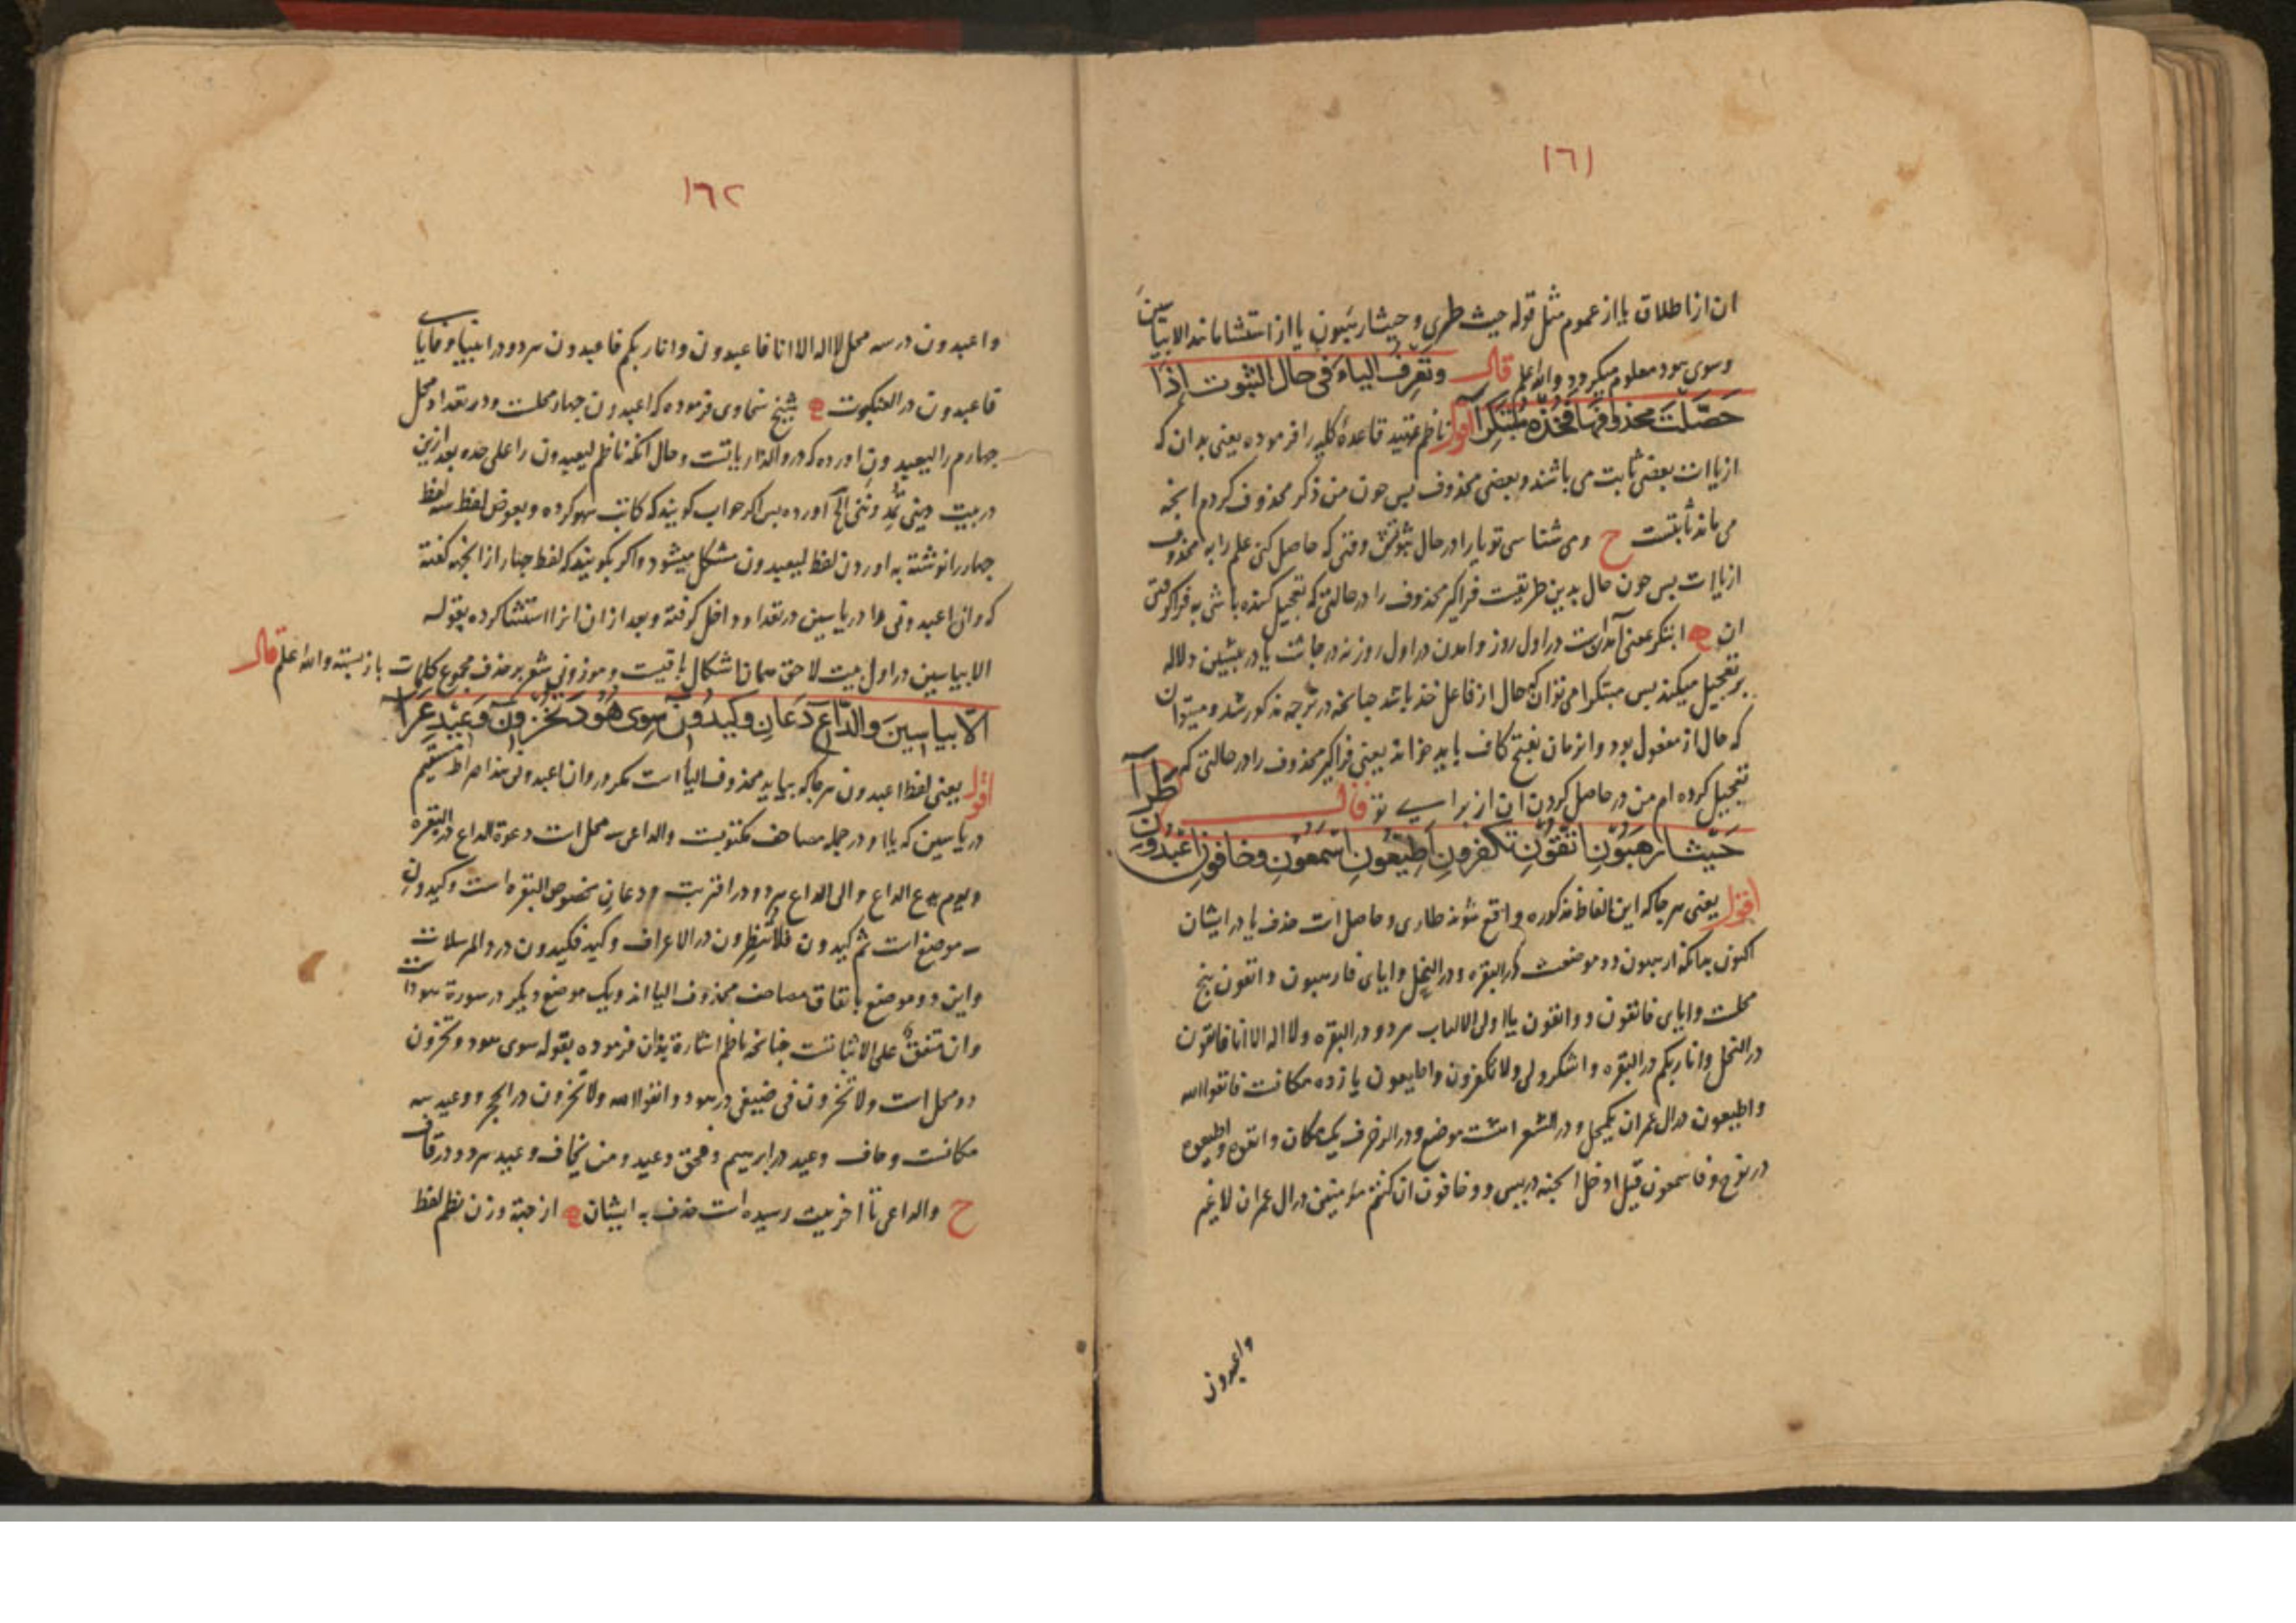 ١٦١
ان از اطلاق یا از عموم مثل قوله حیث طری و حیث ارهبون یا از استثنا مانند الا بیاسین
وسوی هود معلوم میکردد والله اعلم قال وتعرف الیاء فی حال الثبوت إذا
حصّلت محذوفها فخذه مبتکرا اقول ناظم تمهید قاعدهٔ کلیه را فرموده یعنی بدان که
از یاات بعضی ثابت می باشند و بعضی محذوف پس چون من ذکر محذوف کردم انچه
می ماند ثابتست ح ومی شناسی تو یا را در حال ثبوتش وقتی که حاصل کنی علم را به محذوف
از یاات پس چون حال بدین طریقست فراکیر محذوف را در حالتی که تعجیل کننده باشی به فراکرفتن
ان ابتکر بمعنی آمدن در اول روز وامدن در اول روز نه در چاشت یا در پیشین دلاله
بر تعجیل میکند پس مبتکرا می تواند که حال از فاعل خذ باشد چنانچه در ترجمه مذکور شد و میتوان
که حال از مفعول بود وانزمان بفتح کاف باید خواند یعنی فراکیر محذوف را در حالتی که
تعجیل کرده ام من در حاصل کردن ان از برای تو قال طرآ
حیث ارهبون اتقون تکفرون اطیعون اسمعون وخافون اعبدون
اقول یعنی هر جا که این الفاظ مذکوره واقع شوند طاری و حاصل است حذف یا در ایشان
اکنون بدانکه ارهبون دو موضعست در البقره و در النحل وایای فارهبون واتقون پنج
محلست وایای فاتقون وواتقون یا اولی الالباب هر دو در البقره ولا اله الا انا فاتقون
در النحل وانا ربکم در البقره واشکروا لی ولا تکفرون واطیعون یازده مکانست فاتقوا الله
واطیعون در ال عمران یکمحل و در الشعرا هشت موضع و در الزخرف یک مکان واتقوه واطیعون
در نوح وفاسمعون قیل ادخل الجنه در یس ووخافون ان کنتم مؤمنین در ال عمران لا غیر
واعبدون
١٦٢
واعبدون در سه محل لا اله الا انا فاعبدون وانا ربکم فاعبدون هر دو در انبیا وفایای
فاعبدون در العنکبوت شیخ سخاوی فرموده که اعبدون چهار محلست ودر تعداد محل
چهارم را لیعبدون اورده که در والذاریاتست وحال انکه ناظم لیعبدون را علی حده بعد ازین
در بیت اورده پس اکر جواب کویند که کاتب سهو کرده وبعوض لفظ سه لفظ
چهار را نوشته به اوردن لفظ لیعبدون مشکل میشود واکر بکویند که لفظ چهار از انجهه کفته
که وان اعبدونی را در یاسین در تعداد داخل کرفته وبعد از ان انرا استثنا کرده بقوله
الا بیاسین در اول بیت لاحق همان اشکال باقیست وموزونی شعر بر حذف مجموع کلمات باز بسته والله اعلم قال
الا بیاسین والداع دعان وکیدون سوی هود تخزون وعید عرا
اقول یعنی لفظ اعبدون هر جا که بیاید محذوف الیا است مکر در وان اعبدونی هذا صراط مستقیم
در یاسین که یا او در جمله مصاحف مکتوبست والداعی سه محل است دعوة الداع در البقره
ویوم یدع الداع والی الداع هر دو در اقتربت ودعان مخصوص البقره است وکیدون
سه موضع است ثم کیدون فلا تنظرون در الاعراف وکید فکیدون در والمرسلات
واین دو موضع باتفاق مصاحف محذوف الیا اند ویک موضع دیکر در سورة هود است
وان متفق علی الاثباتست چنانچه ناظم اشارة بدان فرموده بقوله سوی هود وتخزون
دو محل است ولا تخزون فی ضیفی در هود وواتقوا الله ولا تخزون در الحجر ووعید سه
مکانست وخاف وعید در ابرهیم وفحق وعید ومن یخاف وعید هر دو در قاف
ح والداعی تا اخر بیت رسیده است حذف به ایشان از جهة وزن نظم لفظ